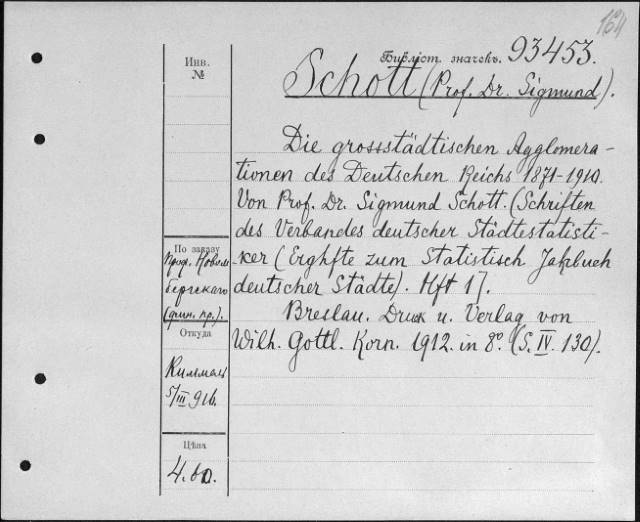 164
Библіот. значекъ. 93453.
Инв.
№
Schott (Prof. Dr. Sigmund).
Die grossstädtischen Agglomera-
tionen des Deutschen Reichs 1871-1910.
Von Prof. Dr. Sigmund Schott. (Schriften
des Verbandes deutscher Städtestatisti-
ker (Erghfte zum Statistisch Jahbuch
deutscher Städte). Hft 1).
Breslau. Druk u. Verlag von
Wilh. Gottl. Korn. 1912. in 8º. (S. IV. 130).
По заказу
проф. Новом
бергскаго
(фин. пр.).
Откуда
Киммель
5/III 916.
Цѣна
4.80.